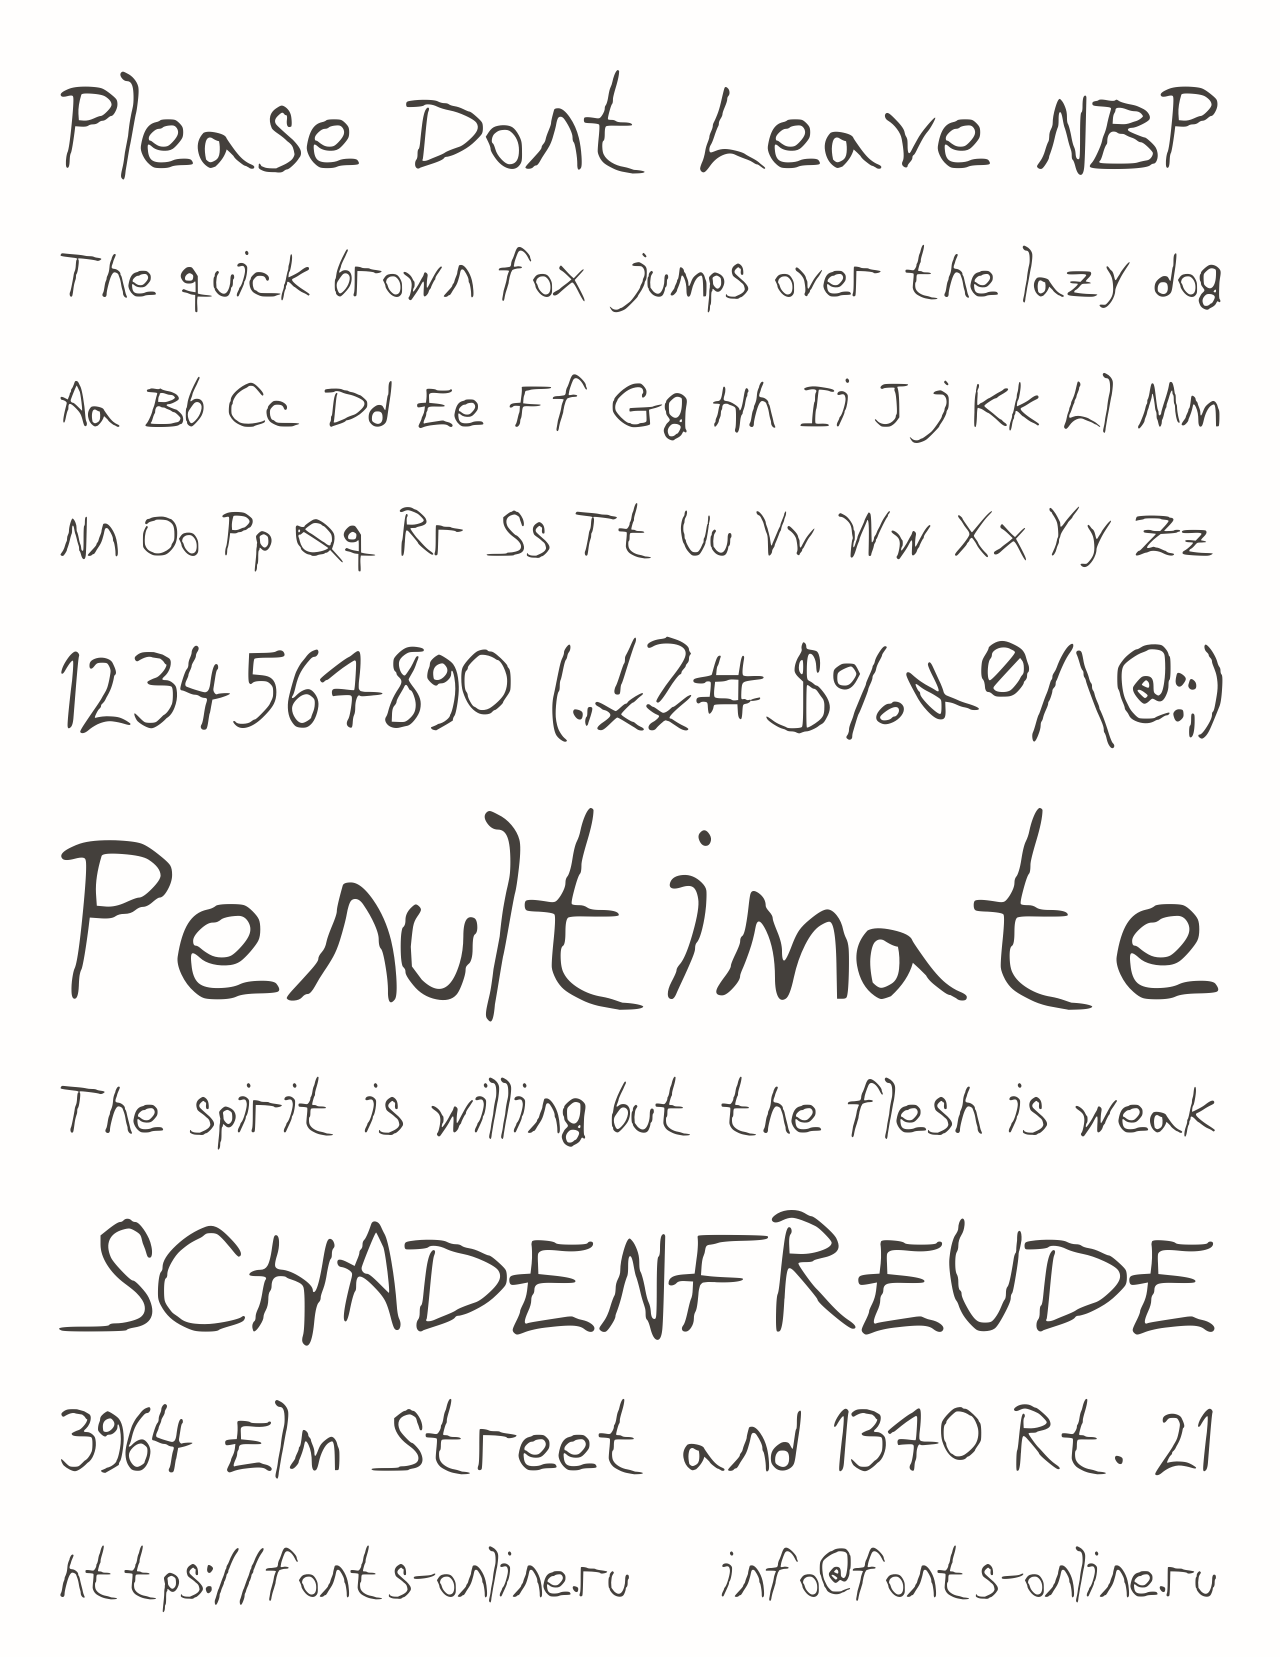 Please Dont Leave NBP
The quick brown fox jumps over the lazy dog
Aa Bb Cc Dd Ee Ff Gg Hh Ii Jj Kk Ll Mm
Nn Oo Pp Qq Rr Ss Tt Uu Vv Ww Xx Yy Zz
1234567890 (.,!?#$%&Ø/\@:;)
Penultimate
The spirit is willing but the flesh is weak
SCHADENFREUDE
3964 Elm Street and 1370 Rt. 21
https://fonts-online.ru info@fonts-online.ru